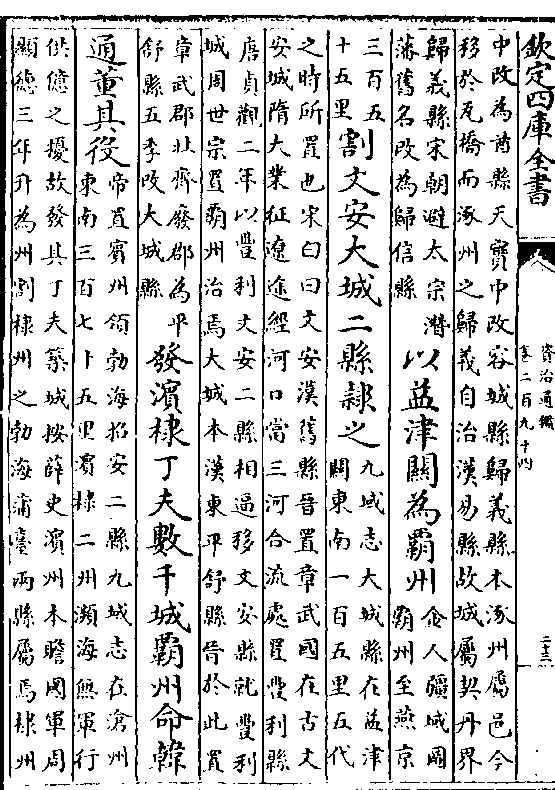 欽定四庫全書
資治通鑑
卷二百九十四
二十三
中改為酋縣天寶中改容城縣歸義縣本涿州屬邑今
移於瓦橋而涿州之歸義自治漢易縣故城屬契丹界
歸義縣宋朝避太宗潛
藩舊名改為歸信縣
以益津關為霸州
金人疆域圖
霸州至燕京
三百五
十五里
割文安大城二縣隸之
九域志大城縣在益津
關東南一百五里五代
之時所置也宋白曰文安漢舊縣晉置章武國在古文
安城隋大業征遼途經河口當三河合流處置豐利縣
唐貞觀二年以豐利文安二縣相逼移文安縣就豐利
城周世宗置霸州治焉大城本漢東平舒縣晉於此置
章武郡北齊廢郡為平
舒縣五季改大城縣
發濱棣丁夫數千城霸州命韓
通董其役
帝置賓州領勃海招安二縣九域志在滄州
東南三百七十五里濱棣二州瀕海無軍行
供億之擾故發其丁夫築城按薛史濱州本贍國軍周
顯德三年升為州割棣州之勃海蒲臺兩縣屬焉棣州